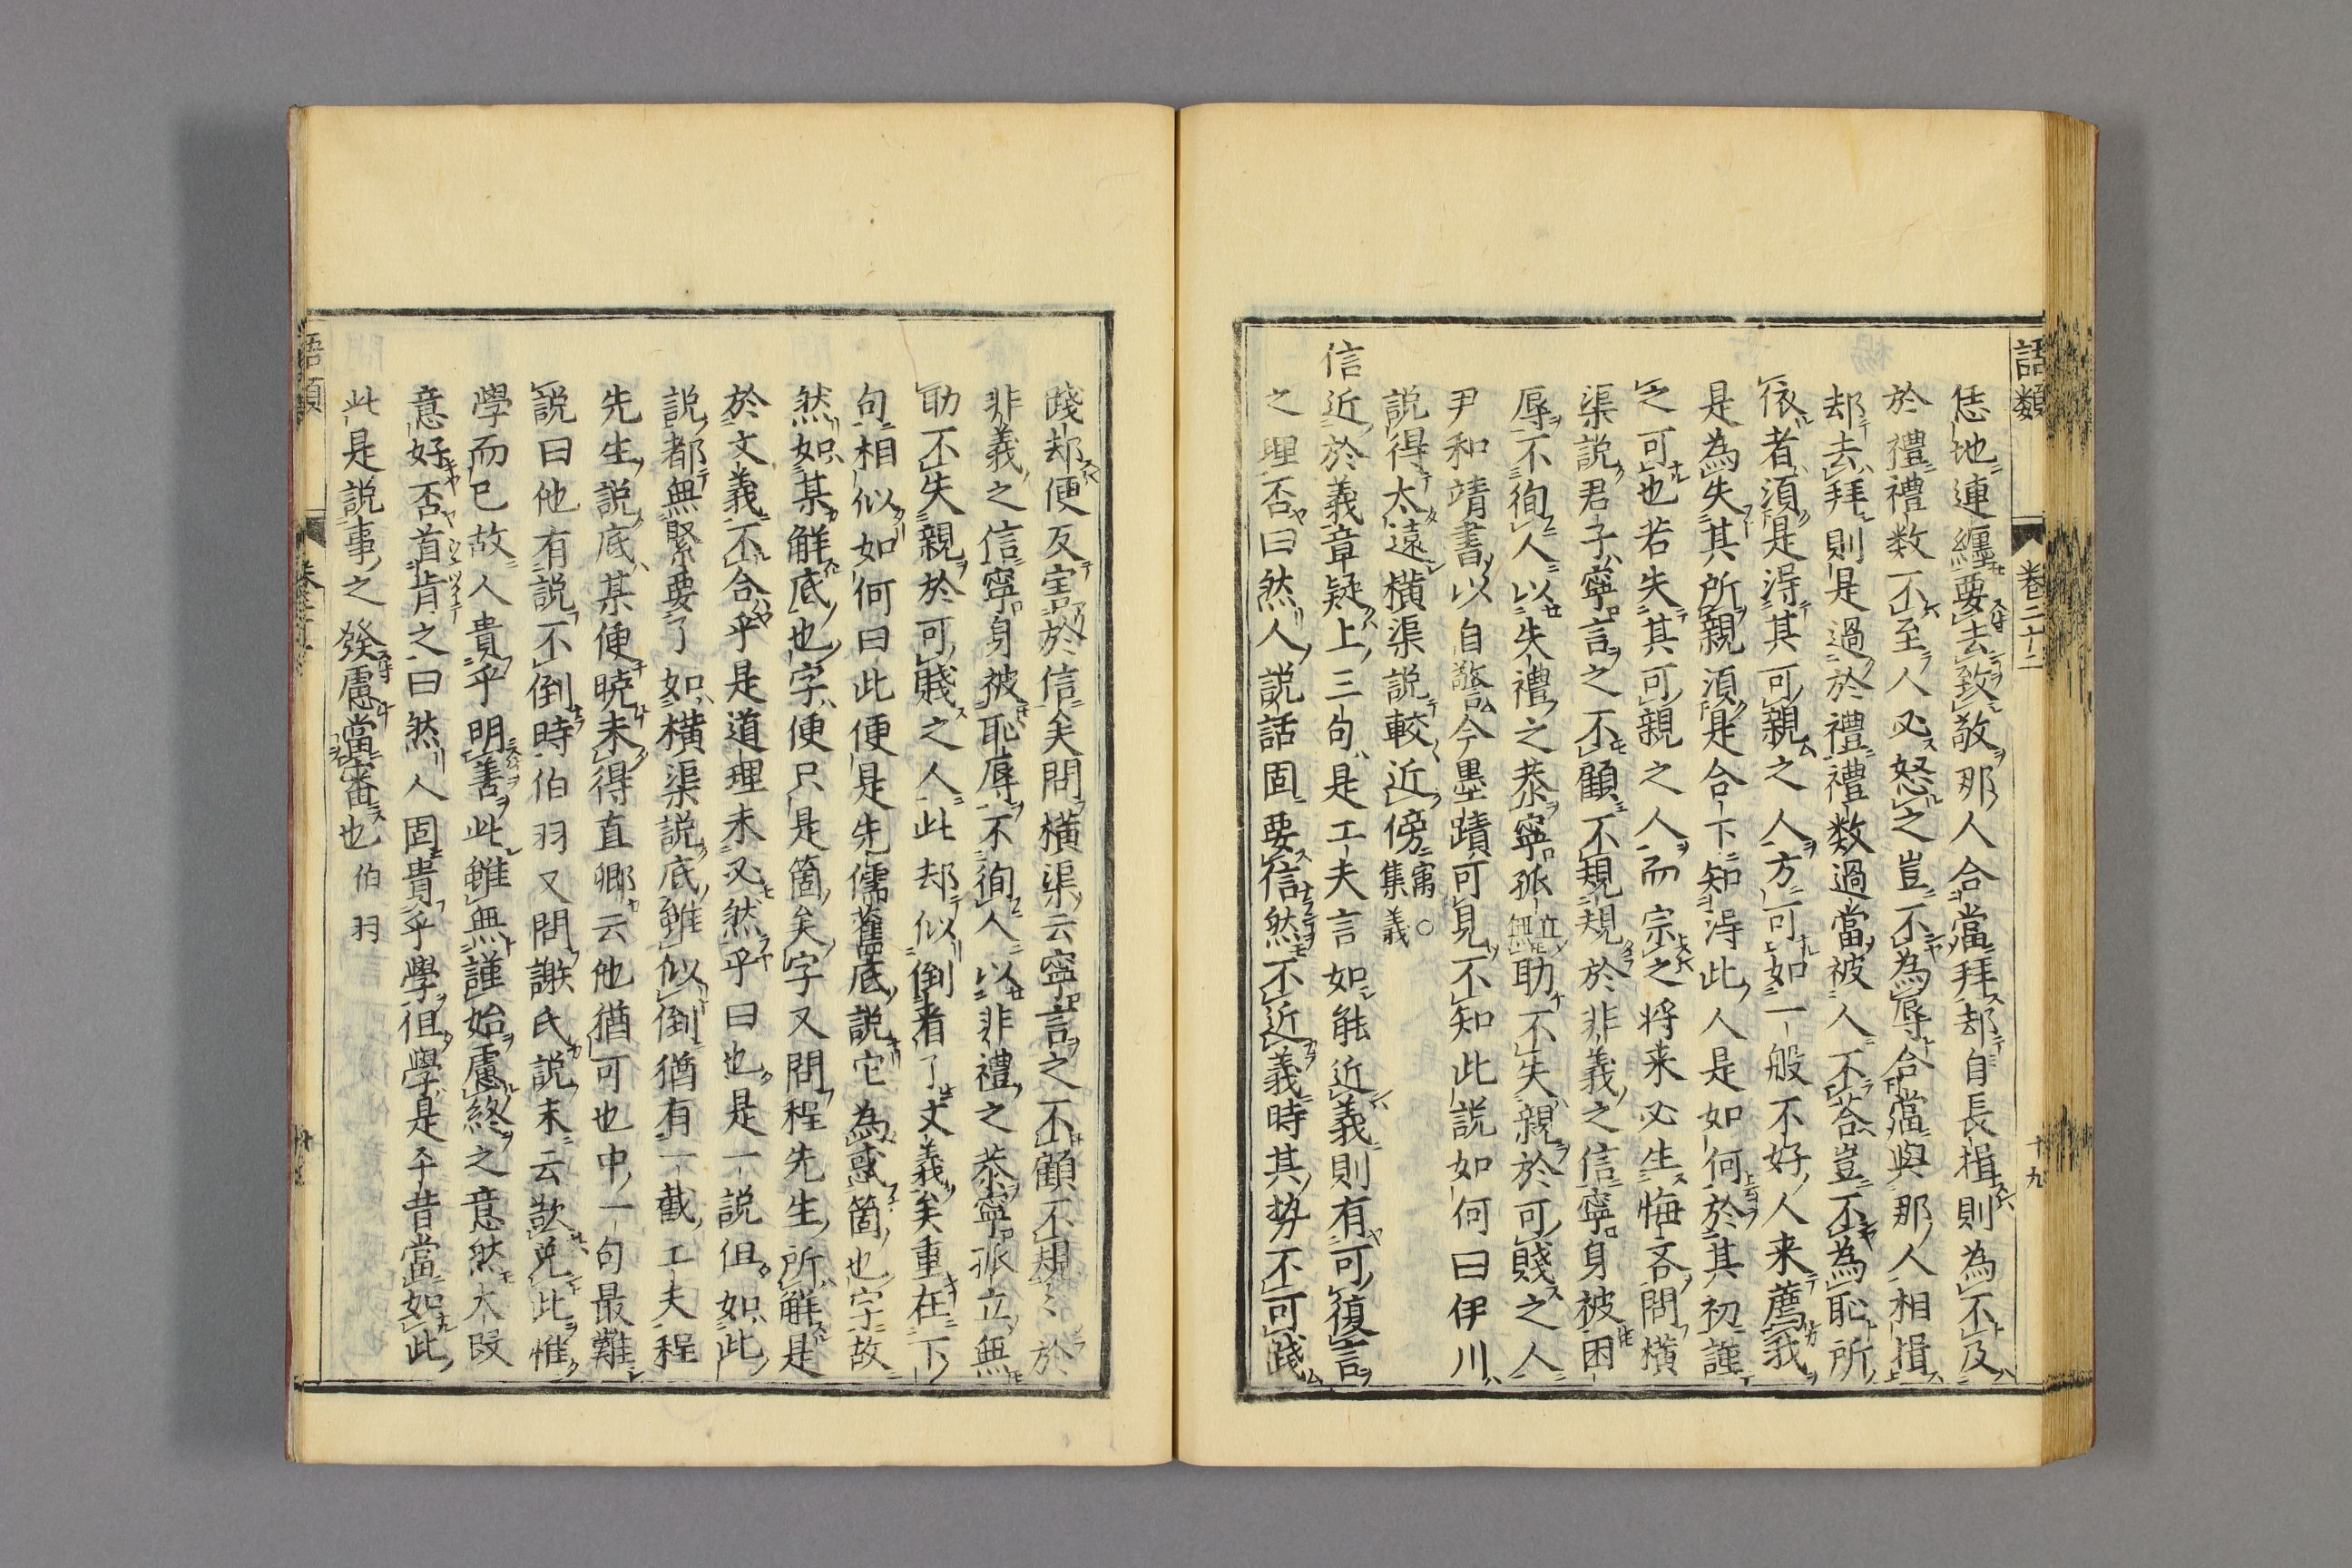 語類 卷二十二 十九
恁地連纏要去致敬那人合當拜却自長揖則為不及
於禮禮数不至人必怒之豈不為辱合當與那人相揖
却去拜則是過於禮禮数過當被人不荅豈不為恥所
依者須是得其可親之人方可如一般不好人来薦我
是為失其所親須是合下知得此人是如何於其初謹
之可也若失其可親之人而宗之将来必生悔吝問橫
渠說君子寧言之不顧不規規於非義之信寧身被困
辱不徇人以失禮之恭寧孤立無助不失親於可賤之人
尹和靖書以自警今墨蹟可見不知此說如何曰伊川
說得太遠橫渠說較近傍㝢○集義
信近於義章疑上三句是工夫言如能近義則有可復言
之理否曰然人說話固要信然不近義時其势不可踐
踐却便反害於信矣問橫渠云寧言之不顧不規々於
非義之信寧身被恥辱不徇人以非禮之恭寧孤立無
助不失親於可賤之人此却似倒看了文義矣重在下
句相似如何曰此便是先儒舊底說它為惑箇也字故
然如某解底也字便只是箇矣字又問程先生所解是
於文義不合乎是道理未必然乎曰也是一說但如此
說都無緊要了如橫渠說底雖似倒猶有一截工夫程
先生說底某便曉未得直卿云他猶可也中一句最難
說曰他有說不倒時伯羽又問謝氏說末云欲免此惟
學而已故人貴乎明善此雖無謹始慮終之意然大段
意好否首肯之曰然人固貴乎學但學是平昔當如此
此是說事之發慮當審也伯羽
語類